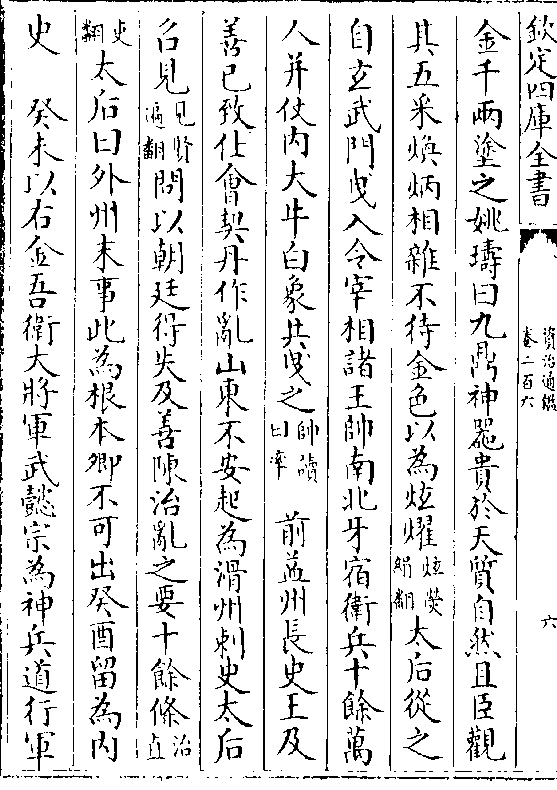 欽定四庫全書
資治通鑑
卷二百六
六
金千兩塗之姚璹曰九鼎神器貴於天質自然且臣觀
其五采煥炳相雜不待金色以為炫燿炫熒絹翻太后從之
自玄武門曳入令宰相諸王帥南北牙宿衛兵十餘萬
人并仗内大牛白象共曳之帥讀曰率 前益州長史王及
善已致仕會契丹作亂山東不安起為滑州刺史太后
召見見賢遍翻問以朝廷得失及善陳治亂之要十餘條治直
吏翻太后曰外州末事此為根本卿不可出癸酉留為内
史 癸未以右金吾衛大將軍武懿宗為神兵道行軍